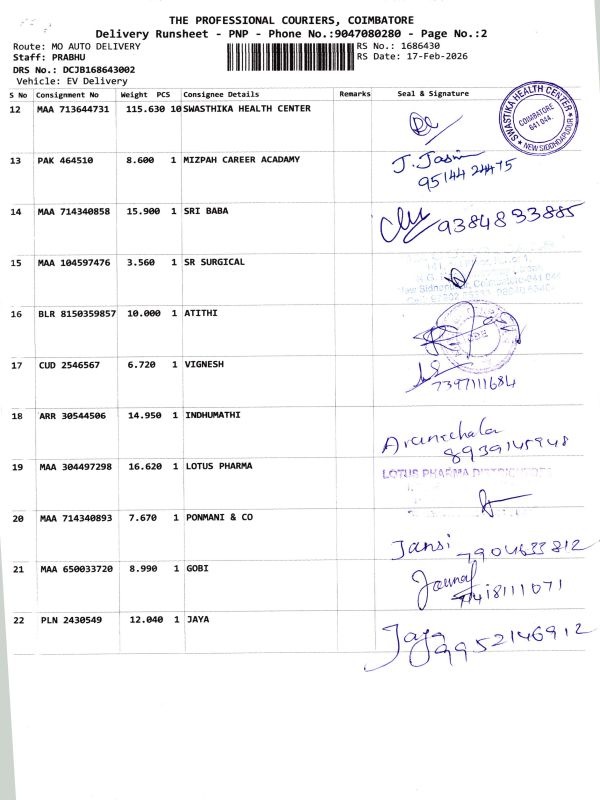 THE PROFESSIONAL COURIERS, COIMBATORE
Delivery Runsheet - PNP - Phone No.:9047080280 - Page No.:2
Route: MO AUTO DELIVERY
RS No.: 1686430
Staff: PRABHU
RS Date: 17-Feb-2026
DRS No.: DCJB168643002
Vehicle: EV Delivery
S No Consignment No Weight PCS Consignee Details Remarks Seal & Signature
12 MAA 713644731 115.630 10 SWASTHIKA HEALTH CENTER
SWASTIKA HEALTH CENTER
COIMBATORE
641 044.
NEW SIDDHAPUDUR
13 PAK 464510 8.600 1 MIZPAH CAREER ACADAMY
J. Jasmi
95144 24475
14 MAA 714340858 15.900 1 SRI BABA
9384833885
15 MAA 104597476 3.560 1 SR SURGICAL
16 BLR 8150359857 10.000 1 ATITHI
17 CUD 2546567 6.720 1 VIGNESH
7397111684
18 ARR 30544506 14.950 1 INDHUMATHI
Arunachala
8939145948
19 MAA 304497298 16.620 1 LOTUS PHARMA
LOTUS PHARMA
20 MAA 714340893 7.670 1 PONMANI & CO
Jansi 7904633812
21 MAA 650033720 8.990 1 GOBI
22 PLN 2430549 12.040 1 JAYA
Jaya 9952146912